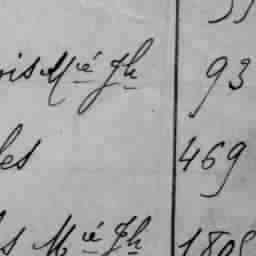 ois Mié Jh 93
les 469
s Mié Jh